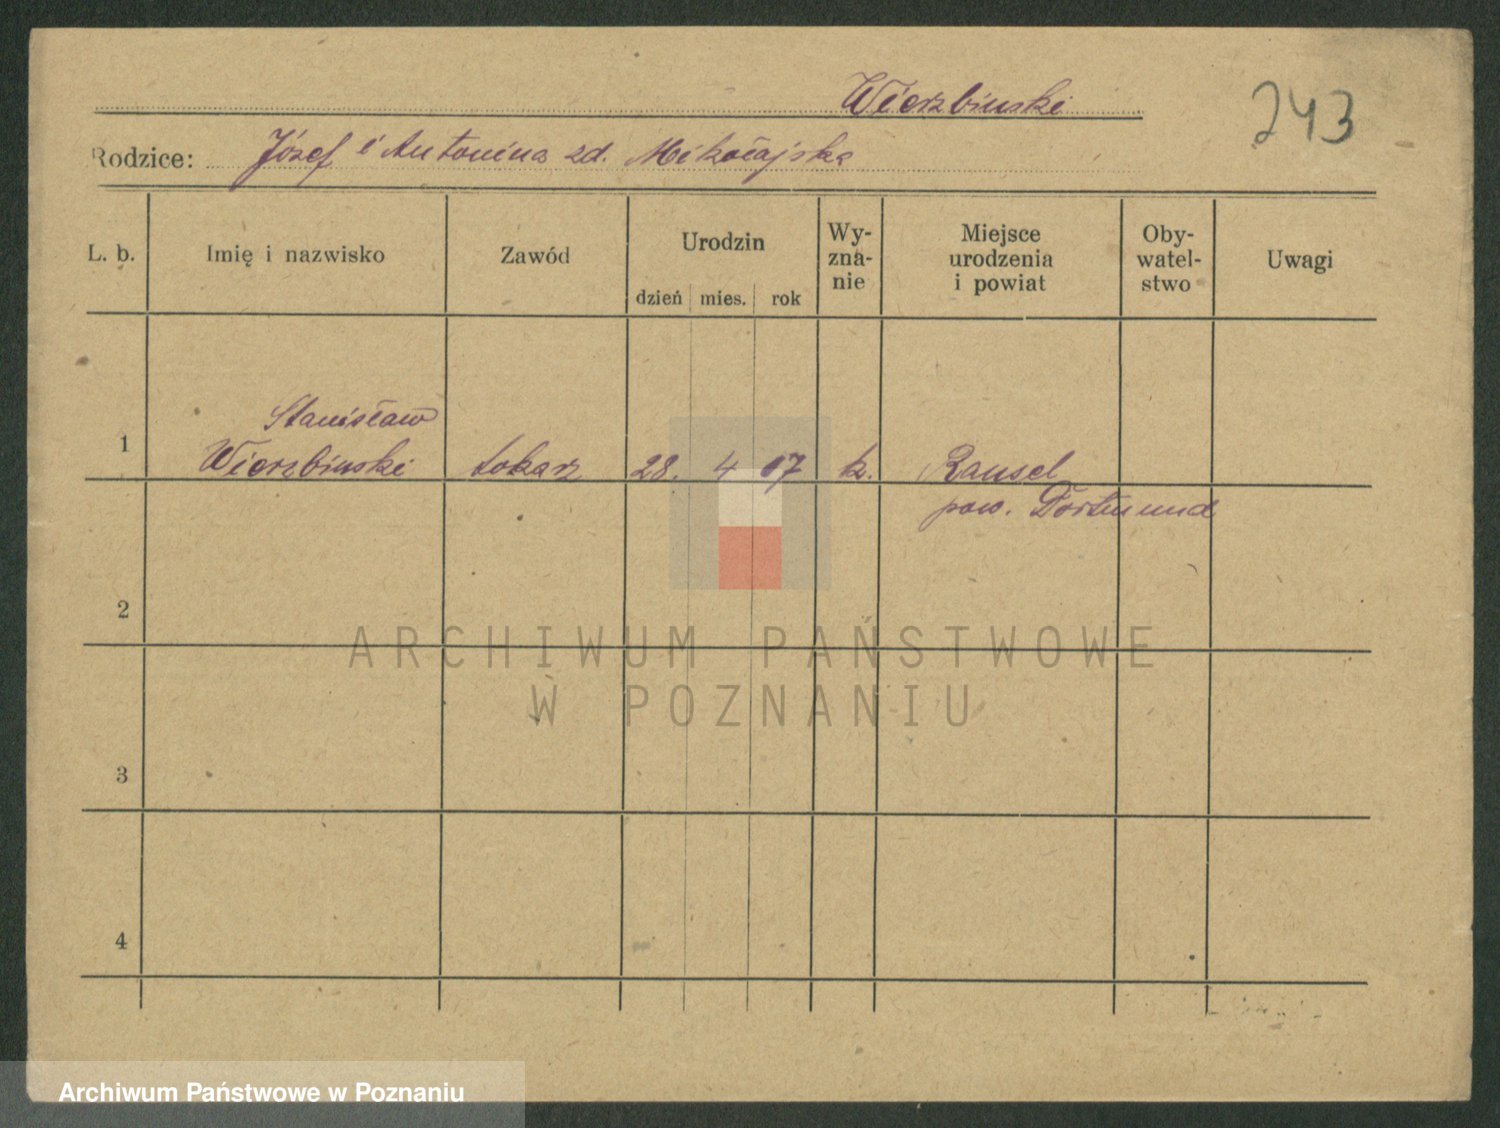 Wierzbinski
243
Rodzice: Józef i Antonina zd. Mikołajska
L. b.
Imię i nazwisko
Zawód
Urodzin
dzień mies. rok
Wy-
zna-
nie
Miejsce
urodzenia
i powiat
Oby-
watel-
stwo
Uwagi
1
Stanisław
Wierzbinski
tokarz
28. 4 07
k.
Rauxel
pow. Dortmund
2
3
4
ARCHIWUM PAŃSTWOWE
W POZNANIU
Archiwum Państwowe w Poznaniu